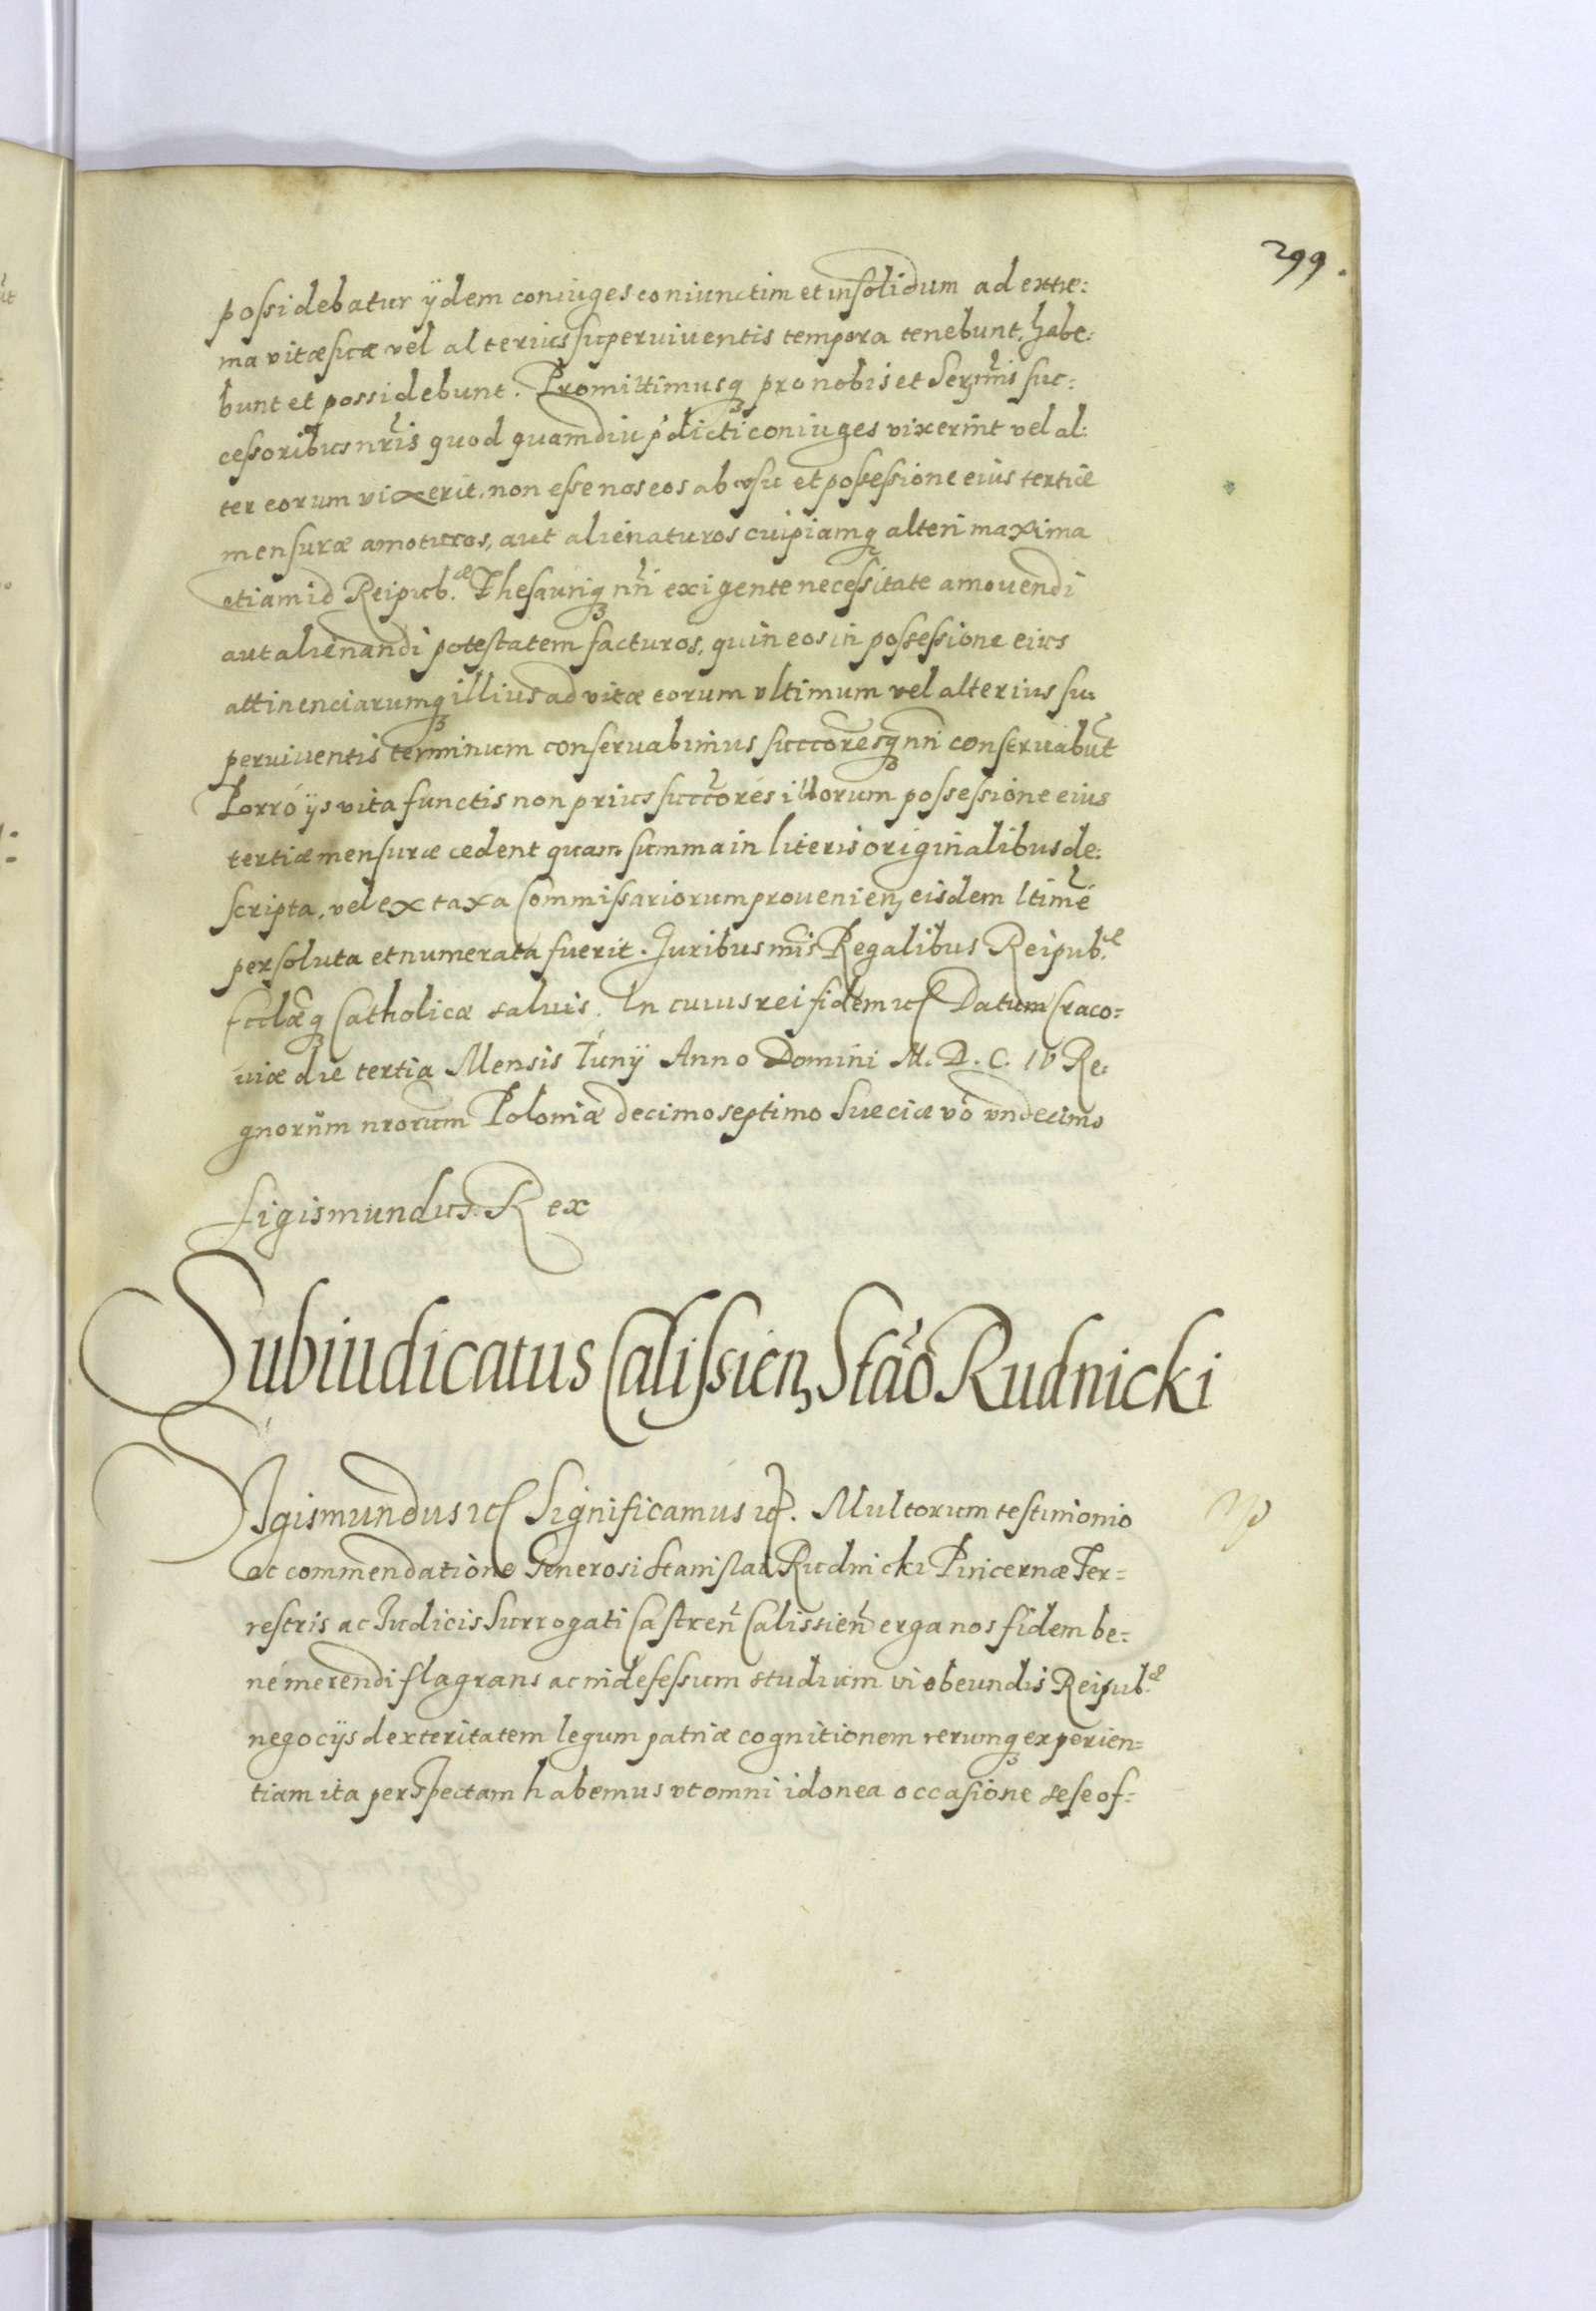 299.
possidebatur ÿdem coniuges coniunctim et insolidum ad extre:
ma vitæ suæ vel alterius superviventis tempora tenebunt, habe:
bunt et possidebunt. Promittimusq₃ pro nobis et Serm̃is suc:
cessoribus nr̃is quod quamdiu p̃dicti coniuges vixerint vel al:
ter eorum vixerit, non esse nos eos ab vsu et possessione eius tertiæ
mensuræ amoturos, aut alienaturos cuipiamq₃ alteri maxima
etiam id Reipub.æ Thesauriq₃ nr̃i exigente necessitate amovendi
aut alienandi potestatem facturos, quin eos in possessione eius
attinenciarumq₃ illius ad vitæ eorum vltimum vel alterius su
perviventis terminum conservabimus succoresq₃ nr̃i conservabũt
Porro ÿs vita functis non prius succõres illorum possessione eius
tertiæ mensuræ cedent quam summa in literis originalibus de:
scripta, vel ex taxa Commissariorum provenien₃ eisdem ltimẽ
persoluta et numerata fuerit. Juribus nr̃is Regalibus Reipub.æ
Ecclæq₃ Catholicæ salvis. In cuius rei fidem etc Datum Craco:
viæ die tertia Mensis Junÿ Anno Domini M. D. C. IV Re:
gnorum nrorum Poloniæ decimo septimo Sueciæ vo vndecimo
Sigismundus Rex
Subiudicatus Calissien₃ Stão Rudnicki
Sigismundus etc Significamus etc. Multorum testimonio
et commendatione Generosi Stanislai Rudnicki Pincernæ Ter=
restris ac Judicis Surrogati Castreñ Calissieñ erga nos fidem be:
ne merendi flagrans ac indefessum studium in obeundis Reipub.æ
negocÿs dexteritatem legum patriæ cognitionem rerumq₃ experien=
tiam ita perspectam habemus vt omni idonea occasione sese of=